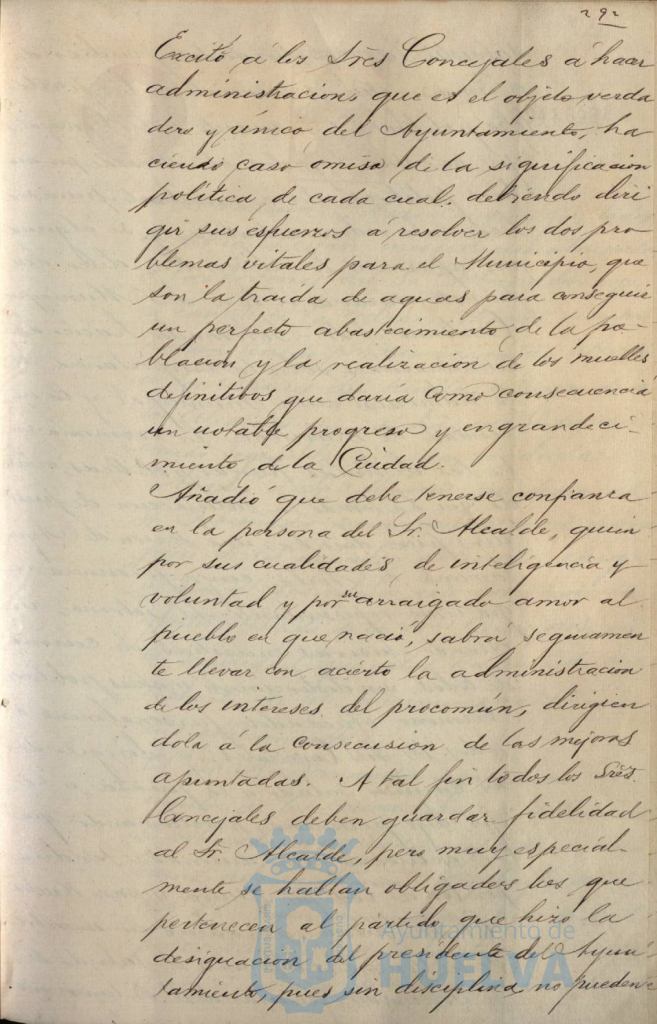 292
Excitó á los Sres Concejales á hacer
administracion, que es el objeto verda
dero y único del Ayuntamiento, ha
ciendo caso omiso de la significacion
politica de cada cual, debiendo diri
gir sus esfuerzos á resolver los dos pro
blemas vitales para el Municipio, que
son la traida de aguas para conseguir
un perfecto abastecimiento de la po-
blacion y la realizacion de los muelles
definitivos que daría como consecuencia
un notable progreso y engrandeci-
miento de la Ciudad.
Añadió que debe tenerse confianza
en la persona del Sr. Alcalde, quien
por sus cualidades de inteligencia y
voluntad y por su arraigado amor al
pueblo en que nació, sabrá seguramen
te llevar con acierto la administracion
de los intereses del procomún, dirigien
dola á la consecusion de las mejoras
apuntadas. A tal fin todos los Sres.
Concejales deben guardar fidelidad
al Sr. Alcalde, pero muy especial-
mente se hallan obligados los que
pertenecen al partido que hizo la
designacion del presidente del Ayun-
tamiento, pues sin disciplina no pueden
Ayuntamiento de
HUELVA